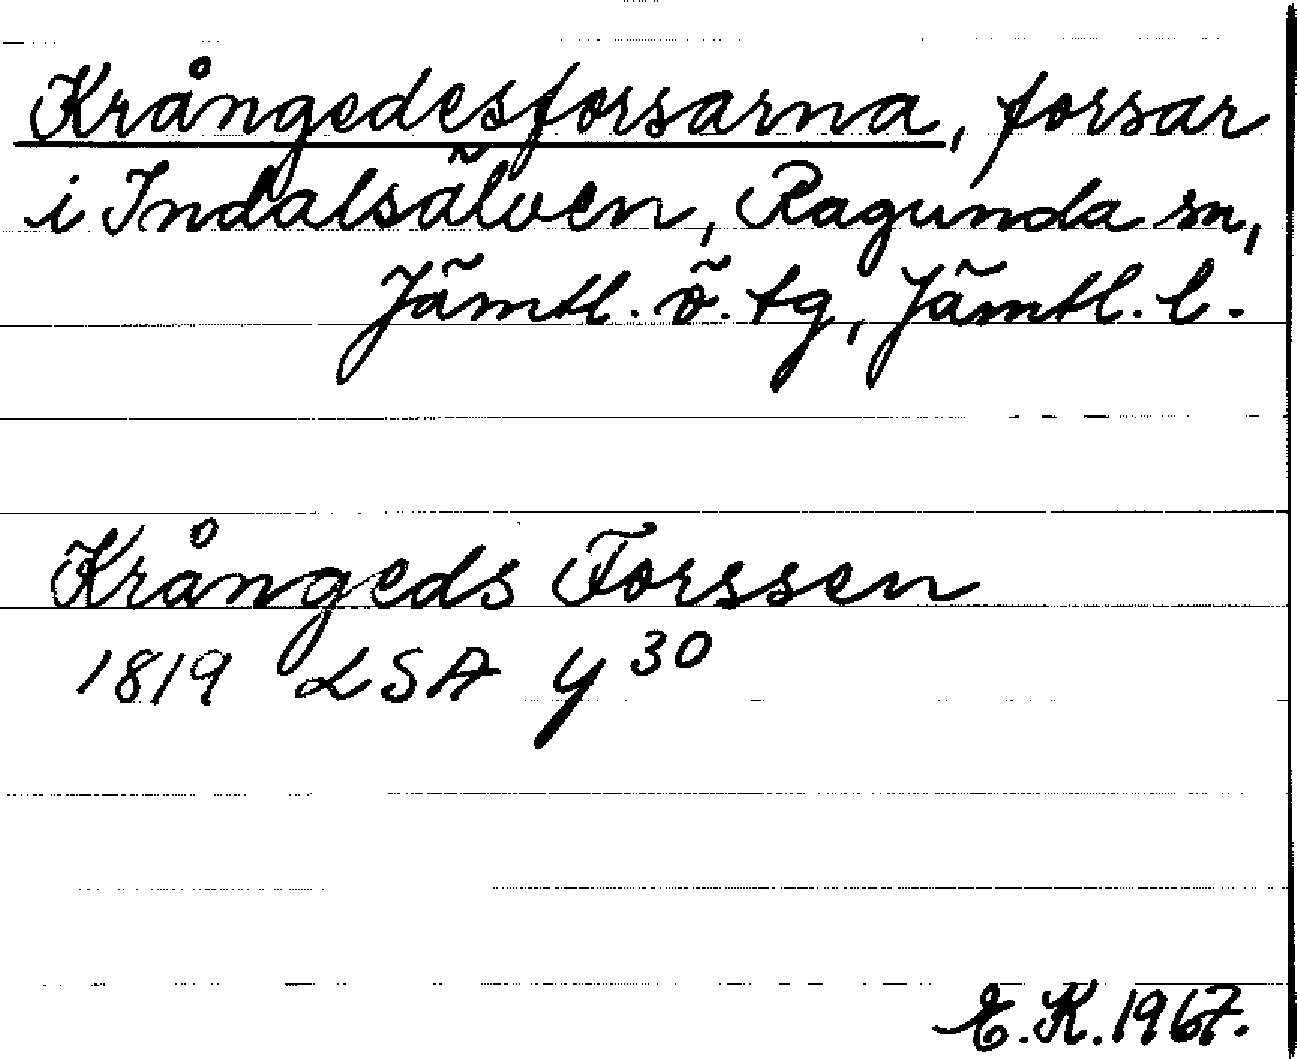 Krångedesforsarna, forsar
i Indalsälven, Ragunda sn,
Jämtl. ö. tg, Jämtl. l.
Krångeds Forssen
1819 LSA y 30
E. K. 1967.